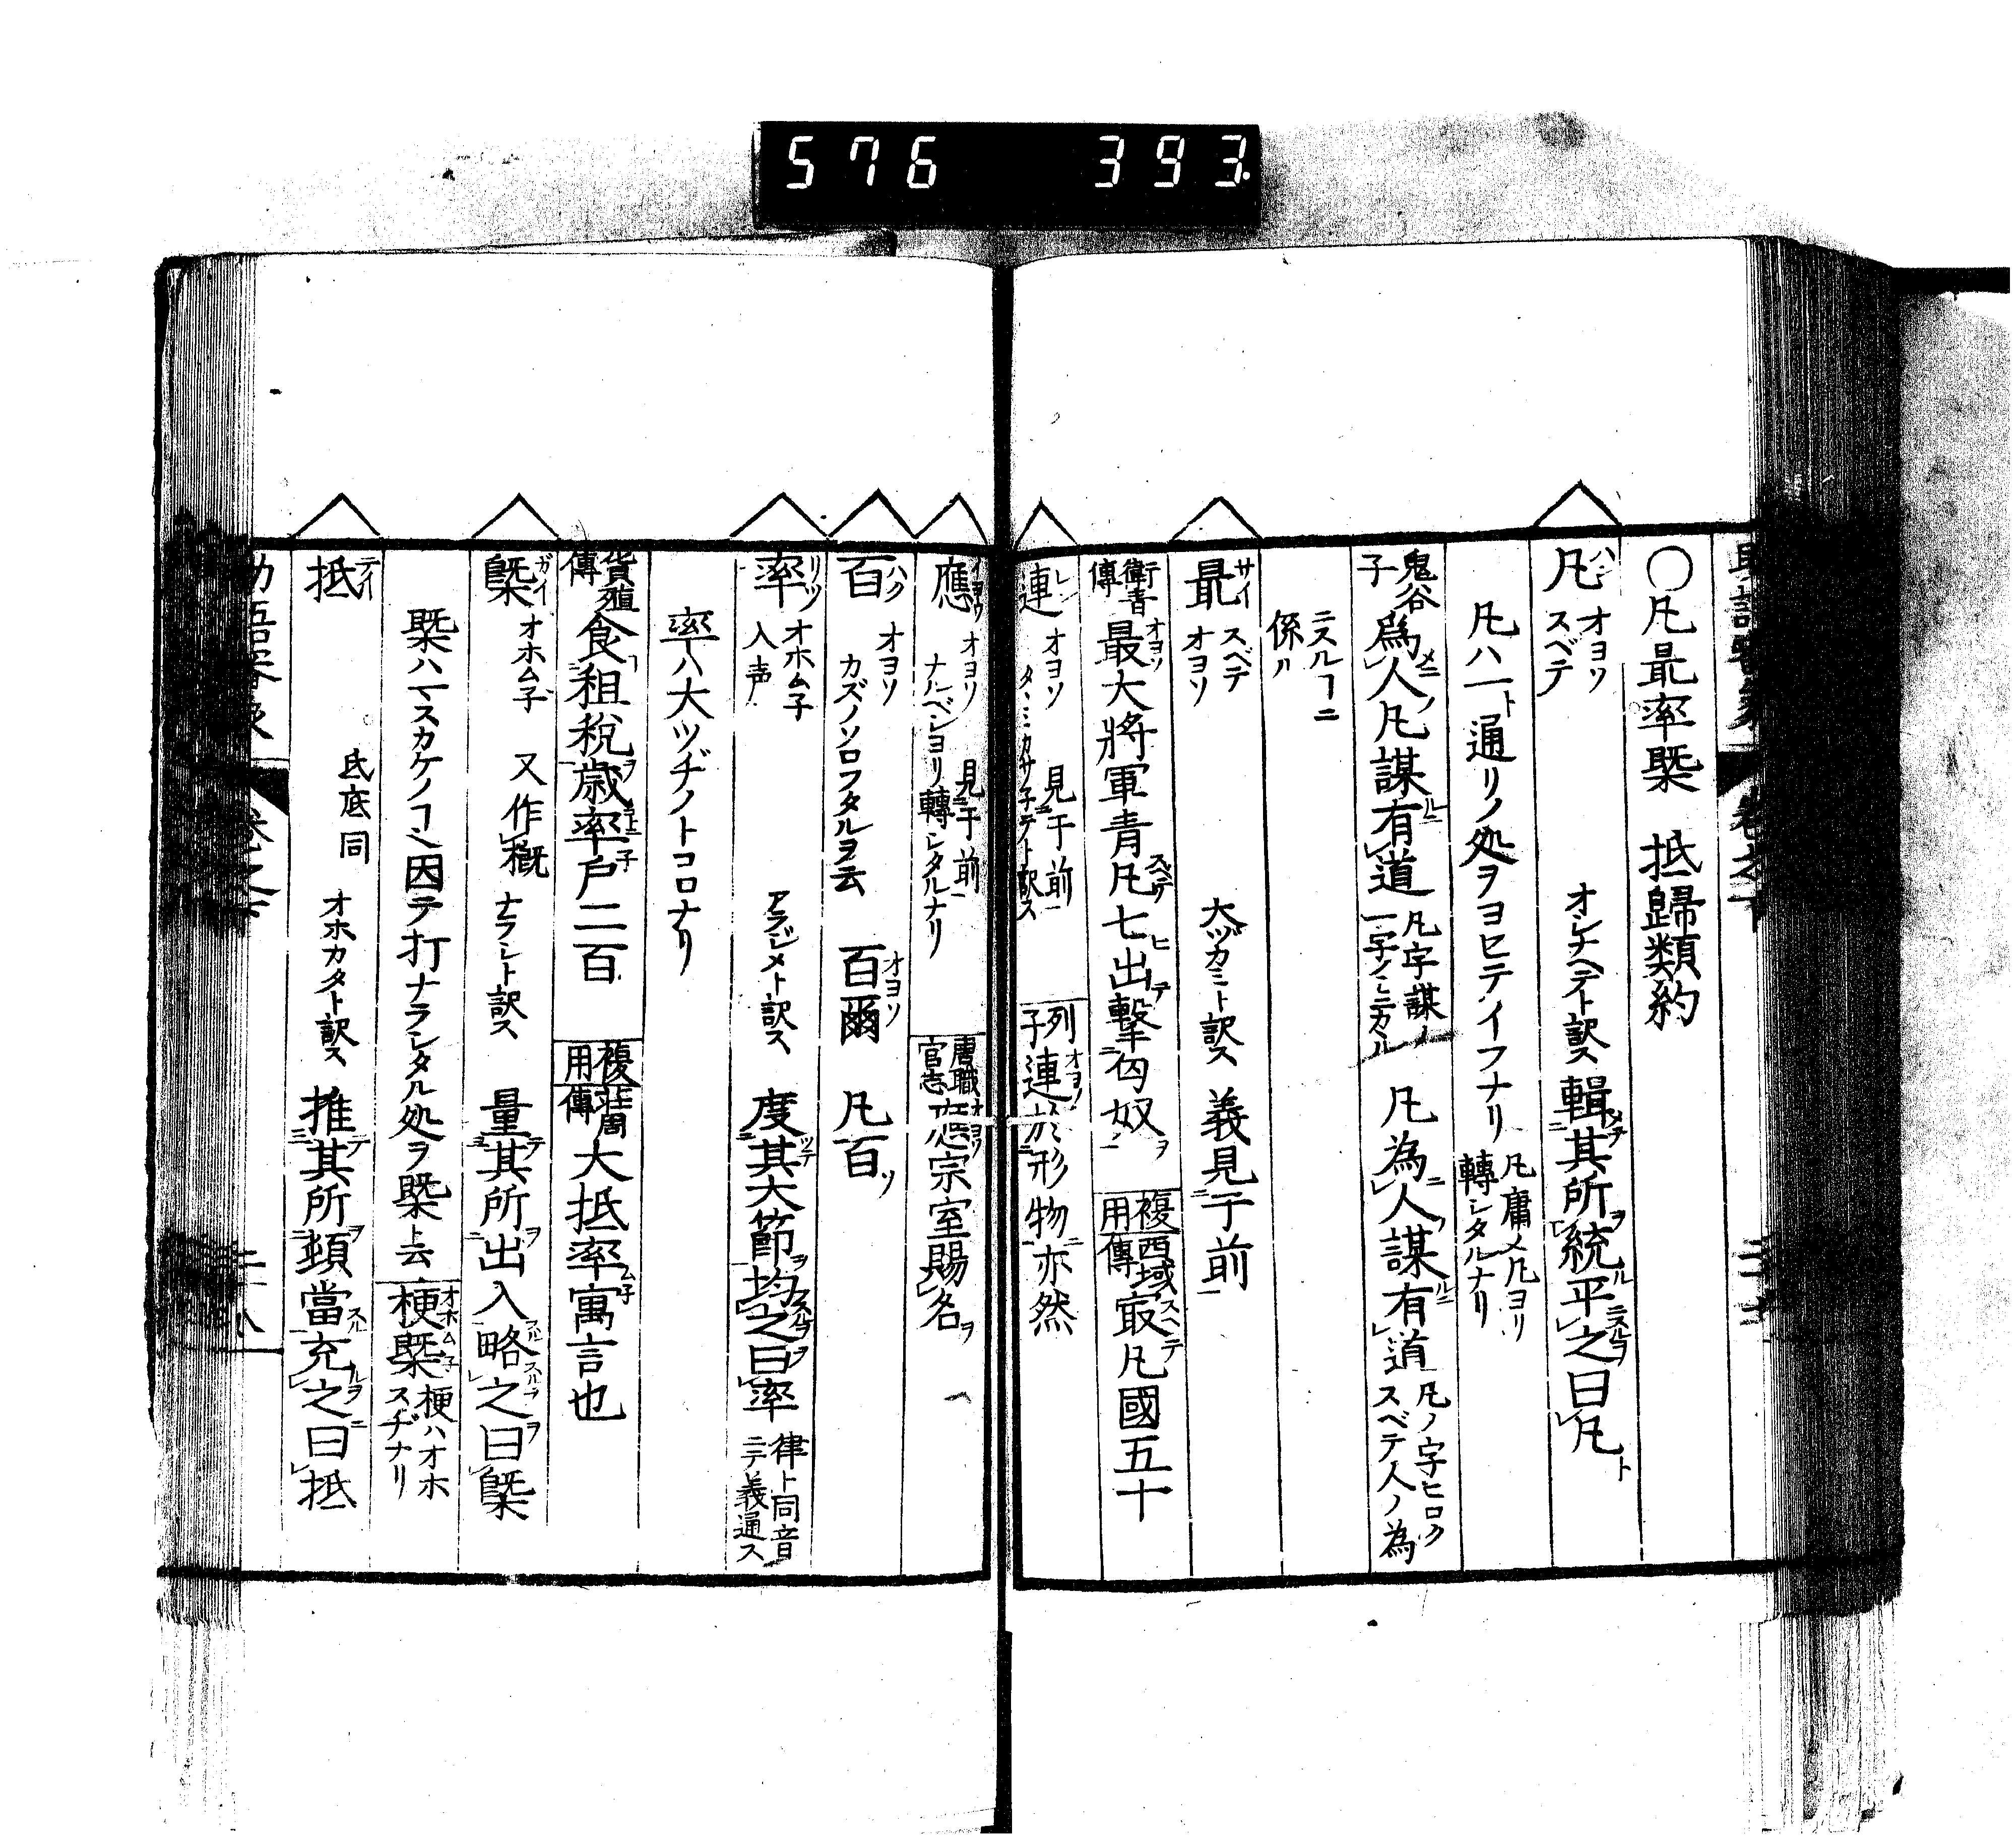 576 393.
○凡最率槩 抵歸類約
凡 ハン オヨソ スベテ オシナヘテト訳ス 輯其所統平之曰凡
凡ハ一ト通リノ処ヲヨセテイフナリ 凡庸ノ凡ヨリ轉シタルナリ
鬼谷子 爲人凡謀有道 凡字謀ノ一字ノミニカヽル 凡為人謀有道 凡ノ字ヒロクスベテ人ノ為
ニスルヿニ係ル
最 サイ スベテ オヨソ 大ヅカミト訳ス 義見于前
衛青傳 最大將軍青凡七出擊匈奴 複用 西域傳 最凡國五十
連 レン オヨソ 見于前 タヽミカサ子テト訳ス 列子 連於形物亦然
應 オヨソ 見于前 ナルベシヨリ轉シタルナリ 唐職官志 應宗室賜名
百 ハク オヨソ カズノソロフタルヲ云 百爾 凡百
率 リツ オホム子 入声 アラジメト訳ス 度其大節均之曰率 律ト同音ニテ義通ス
率ハ大ツヂノトコロナリ
貨殖傳 食租稅歲率戶二百 複用 荘周傳 大抵率寓言也
槩 ガイ オホム子 又作概 ナラシト訳ス 量其所出入略之曰槩
槩ハマスカケノヿ因テ打ナラシタル処ヲ槩ト云 梗槩 梗ハオホスヂナリ
抵 テイ 氐底同 オホカタト訳ス 推其所類當充之曰抵